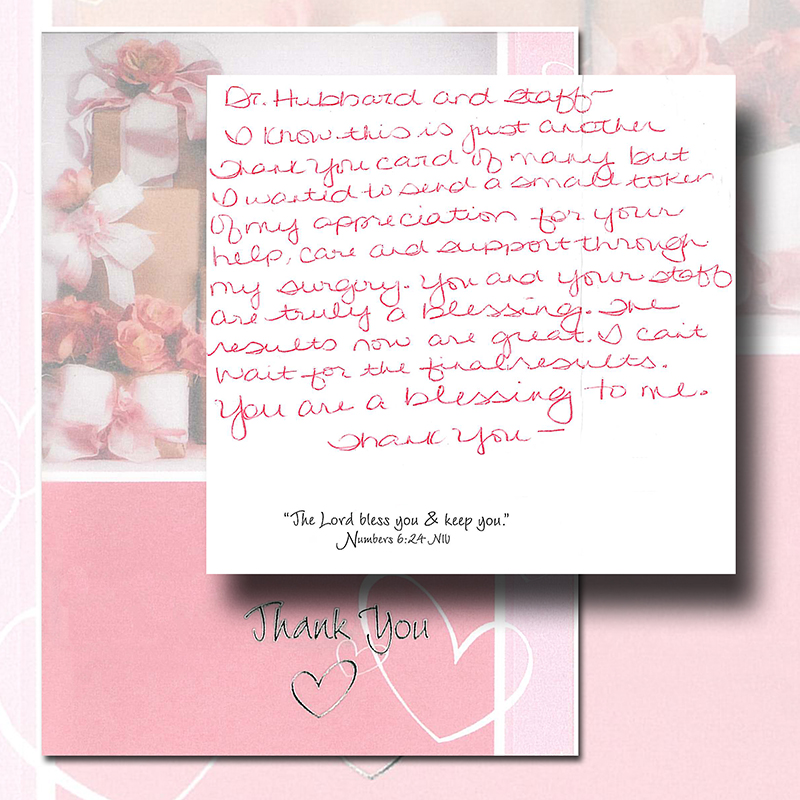 Dr. Hubbard and staff-
I know this is just another
Thank You card of many but
I wantid to send a small token
Of my appreciation for your
help, care and support through
my surgery. You and your staff
are truly a blessing. The
results now are great. I can't
Wait for the final results.
You are a blessing to me.
Thank You -
"The Lord bless you & keep you."
Numbers 6:24 NIV
Thank You